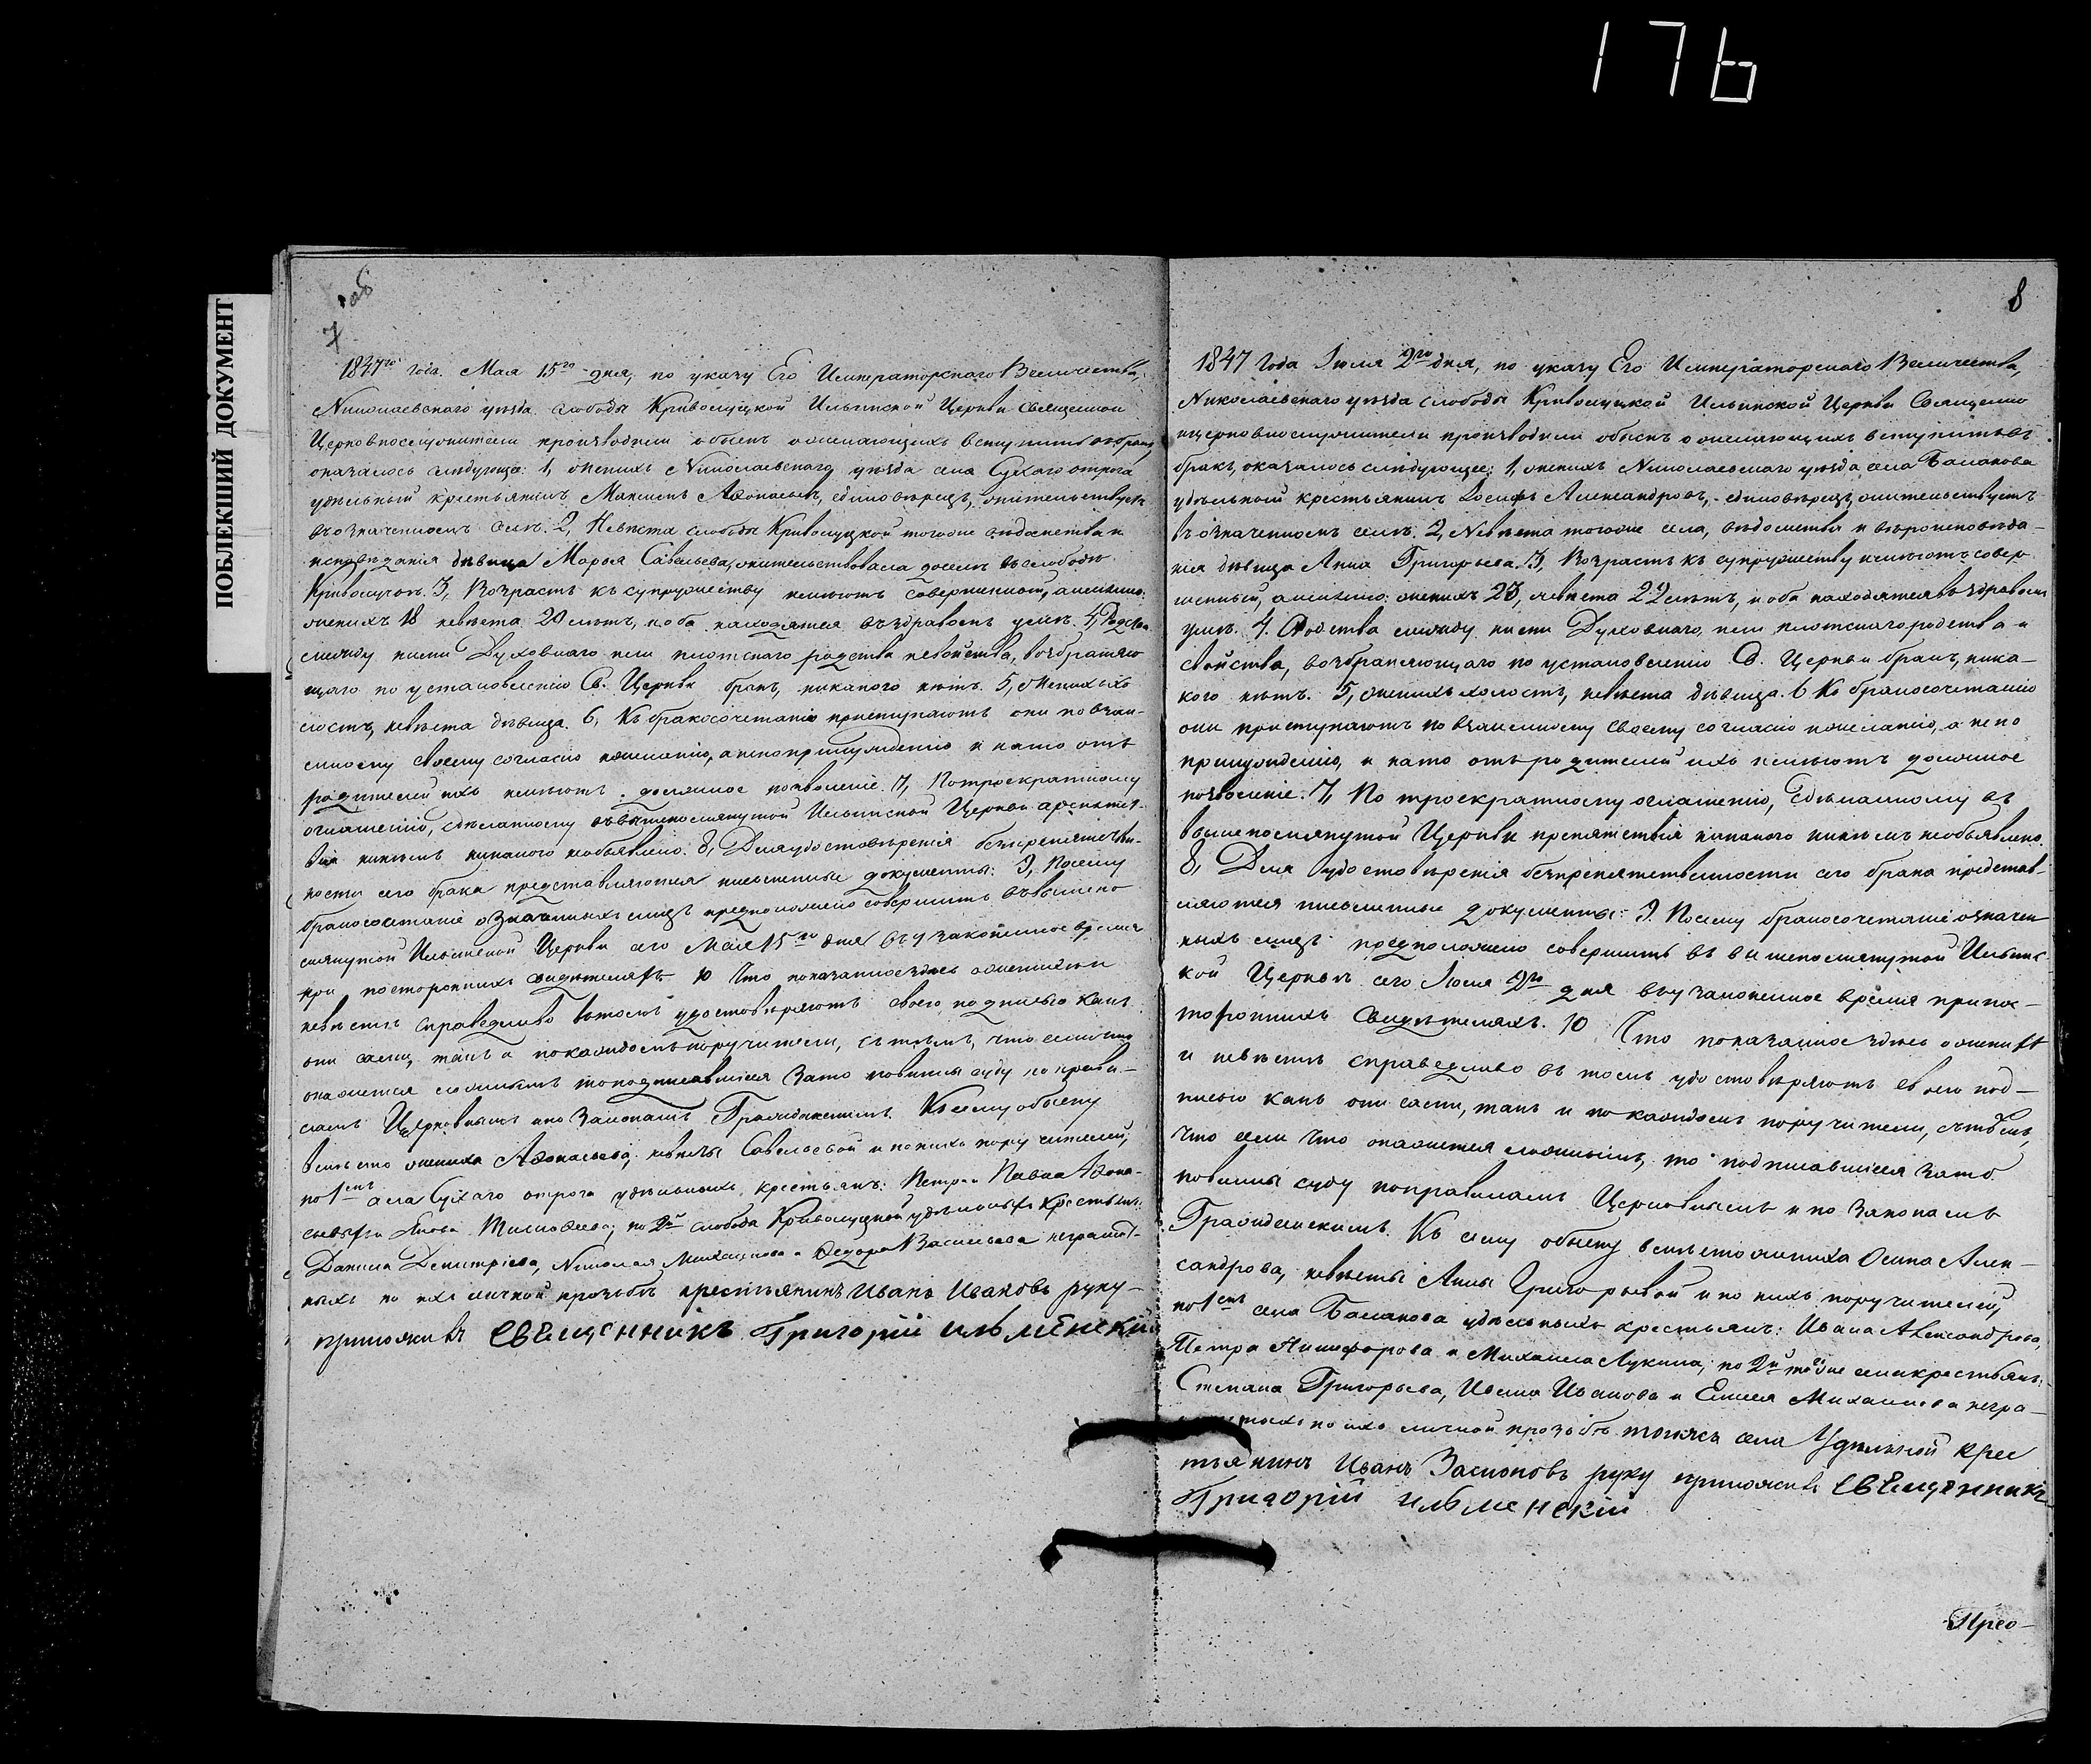 176
ПОБЛЕКШИЙ ДОКУМЕНТ
об
7
1847го года. Мая 15го дня, по указу Его Императорскаго Величества,
Николаевскаго уезда слободы Криволуцкой Ильинской Церкви Священно
Церковнослужители производили обыск о желающихъ вступить въ бракъ,
оказалось следующе: 1, женихъ Николаевскаго уезда села Сухаго отрога
удѣльный крестьянинъ Максимъ Афонасьевъ, единовѣрецъ, жительствуетъ
въ означенномъ селѣ. 2, Невѣста слободы Криволуцкой тогоже вѣдомства и
исповѣданія дѣвица Марья Савельева, жительствовала доселѣ въ слободѣ
Криволучьѣ. 3, Возрастъ къ супружеству имѣютъ совершенный, а именно:
женихъ 18 невѣста 20 лѣтъ, и оба находятся въ здравомъ умѣ. 4, Родства
между ними Духовнаго или плотскаго родства и свойства, возбраняю
щаго по установленію Св. Церкви бракъ, никакого нѣтъ. 5, Женихъ хо
лостъ, невѣста дѣвица. 6, Къ бракосочетанію приступаютъ они по взаи-
мному своему согласію и желанію, а не по принужденію и на то отъ
родителей ихъ имѣютъ должное позволеніе. 7, По троекратному
оглашенію, сдѣланному въ вышепомянутой Ильинской Церкви препятст-
вія никѣмъ никакого необъявлено. 8, Для удостовѣренія безпрепятстве-
ности сего брака представляются письменные документы: 9, Посему
бракосочетаніе означенныхъ лицъ предположено совершить въ вышепо
мянутой Ильинской Церкви сего Мая 15го дня въ узаконенное время
при постороннихъ свидѣтеляхъ 10 Что показанное здѣсь о женихѣ и
невѣстѣ справедливо въ томъ удостовѣряютъ своею подписью какъ
они сами, такъ и по каждомъ поручители, съ тѣмъ, что если что
окажется ложнымъ то подписавшіеся за то повинны суду по прави-
ламъ Церковнымъ и по законамъ Гражданскимъ. Къ сему обыску
вмѣсто жениха Афонасьева, невѣсты Савельевой и по нихъ поручителей,
по 1мъ села Сухаго отрога удѣльныхъ крестьянъ: Петра и Павла Афона-
сьевыхъ и Якова Тимофеева; по 2й слободы Криволуцкой удѣльныхъ крестьянъ:
Данила Демитріева, Николая Михайлова и Федора Васильева неграмот-
ныхъ по ихъ личной прозьбѣ крестьянинъ Иванъ Ивановъ руку-
приложилъ Священникъ Григорій Ильменскій
8
1847 Года Іюля 2го дня, по указу Его Императорскаго Величества,
Николаевскаго уѣзда слободы Криволуцкой Ильинской Церкви Священно
ицерковнослужители производили обыскъ о желающихъ вступить въ
бракъ, оказалось слѣдующее: 1, женихъ Николаевскаго уѣзда села Балакова
удѣльный крестьянинъ Іосифъ Александровъ, единовѣрецъ, жительствуетъ
въ означенномъ селѣ. 2, Невѣста тогоже села, вѣдомства и вѣроисповѣда-
нія дѣвица Анна Григорьева. 3, Возрастъ къ супружеству имѣютъ совер-
шенный, а именно: женихъ 23, невѣста 22 лѣтъ, и оба находятся въ здравомъ
умѣ. 4. Родства между ними Духовнаго, или плотскаго родства и
свойства, возбраняющаго по установленію Св. Церкви бракъ, ника-
кого нѣтъ. 5, женихъ холостъ, невѣста дѣвица. 6 Къ бракосочетанію
они приступаютъ по взаимному своему согласію и желанію, а не по
принужденію, и на то отъ родителей ихъ имѣютъ должное
позволеніе. 7, По троекратному оглашенію, сдѣланному въ
вышепомянутой Церкви препятствія никакого никѣмъ необъявлено.
8, Для удостовѣренія безпрепятственности сего брака представ-
ляются письменные документы: 9. Посему бракосочетаніе означен
ныхъ лицъ предположено совершить въ вышепомянутой Ильинс
кой Церквѣ сего Іюля 2го дня въ узаконенное время при пос-
тороннихъ свидѣтеляхъ. 10 Что показанное здѣсь о женихѣ
и невѣстѣ справедливо въ томъ удостовѣряютъ своею под-
писью какъ они сами, такъ и по каждомъ поручители, съ тѣмъ,
что если что окажется ложнымъ, то подписавшіеся за то
повинны суду по правиламъ Церковнымъ и по законамъ
Гражданскимъ. Къ сему обыску вмѣсто жениха Осипа Алек-
сандрова, невѣсты Анны Григорьевой и по нихъ поручителей,
по 1мъ села Балакова удѣльныхъ крестьянъ: Ивана Александрова,
Петра Никифорова и Михаила Лукина; по 2й тогоже села крестьянъ:
Степана Григорьева, Ивана Иванова и Емельяна Михайлова негра-
мотныхъ по ихъ личной прозьбѣ тогожъ села Удѣльной крес
тьянинъ Иванъ Засиповъ руку приложилъ Священникъ
Григорій Ильменскій
Прео-